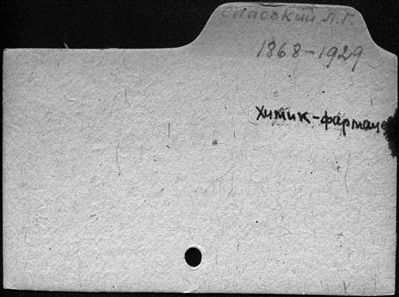 Спасский Л.Г.
1868-1929
химик-фармаце